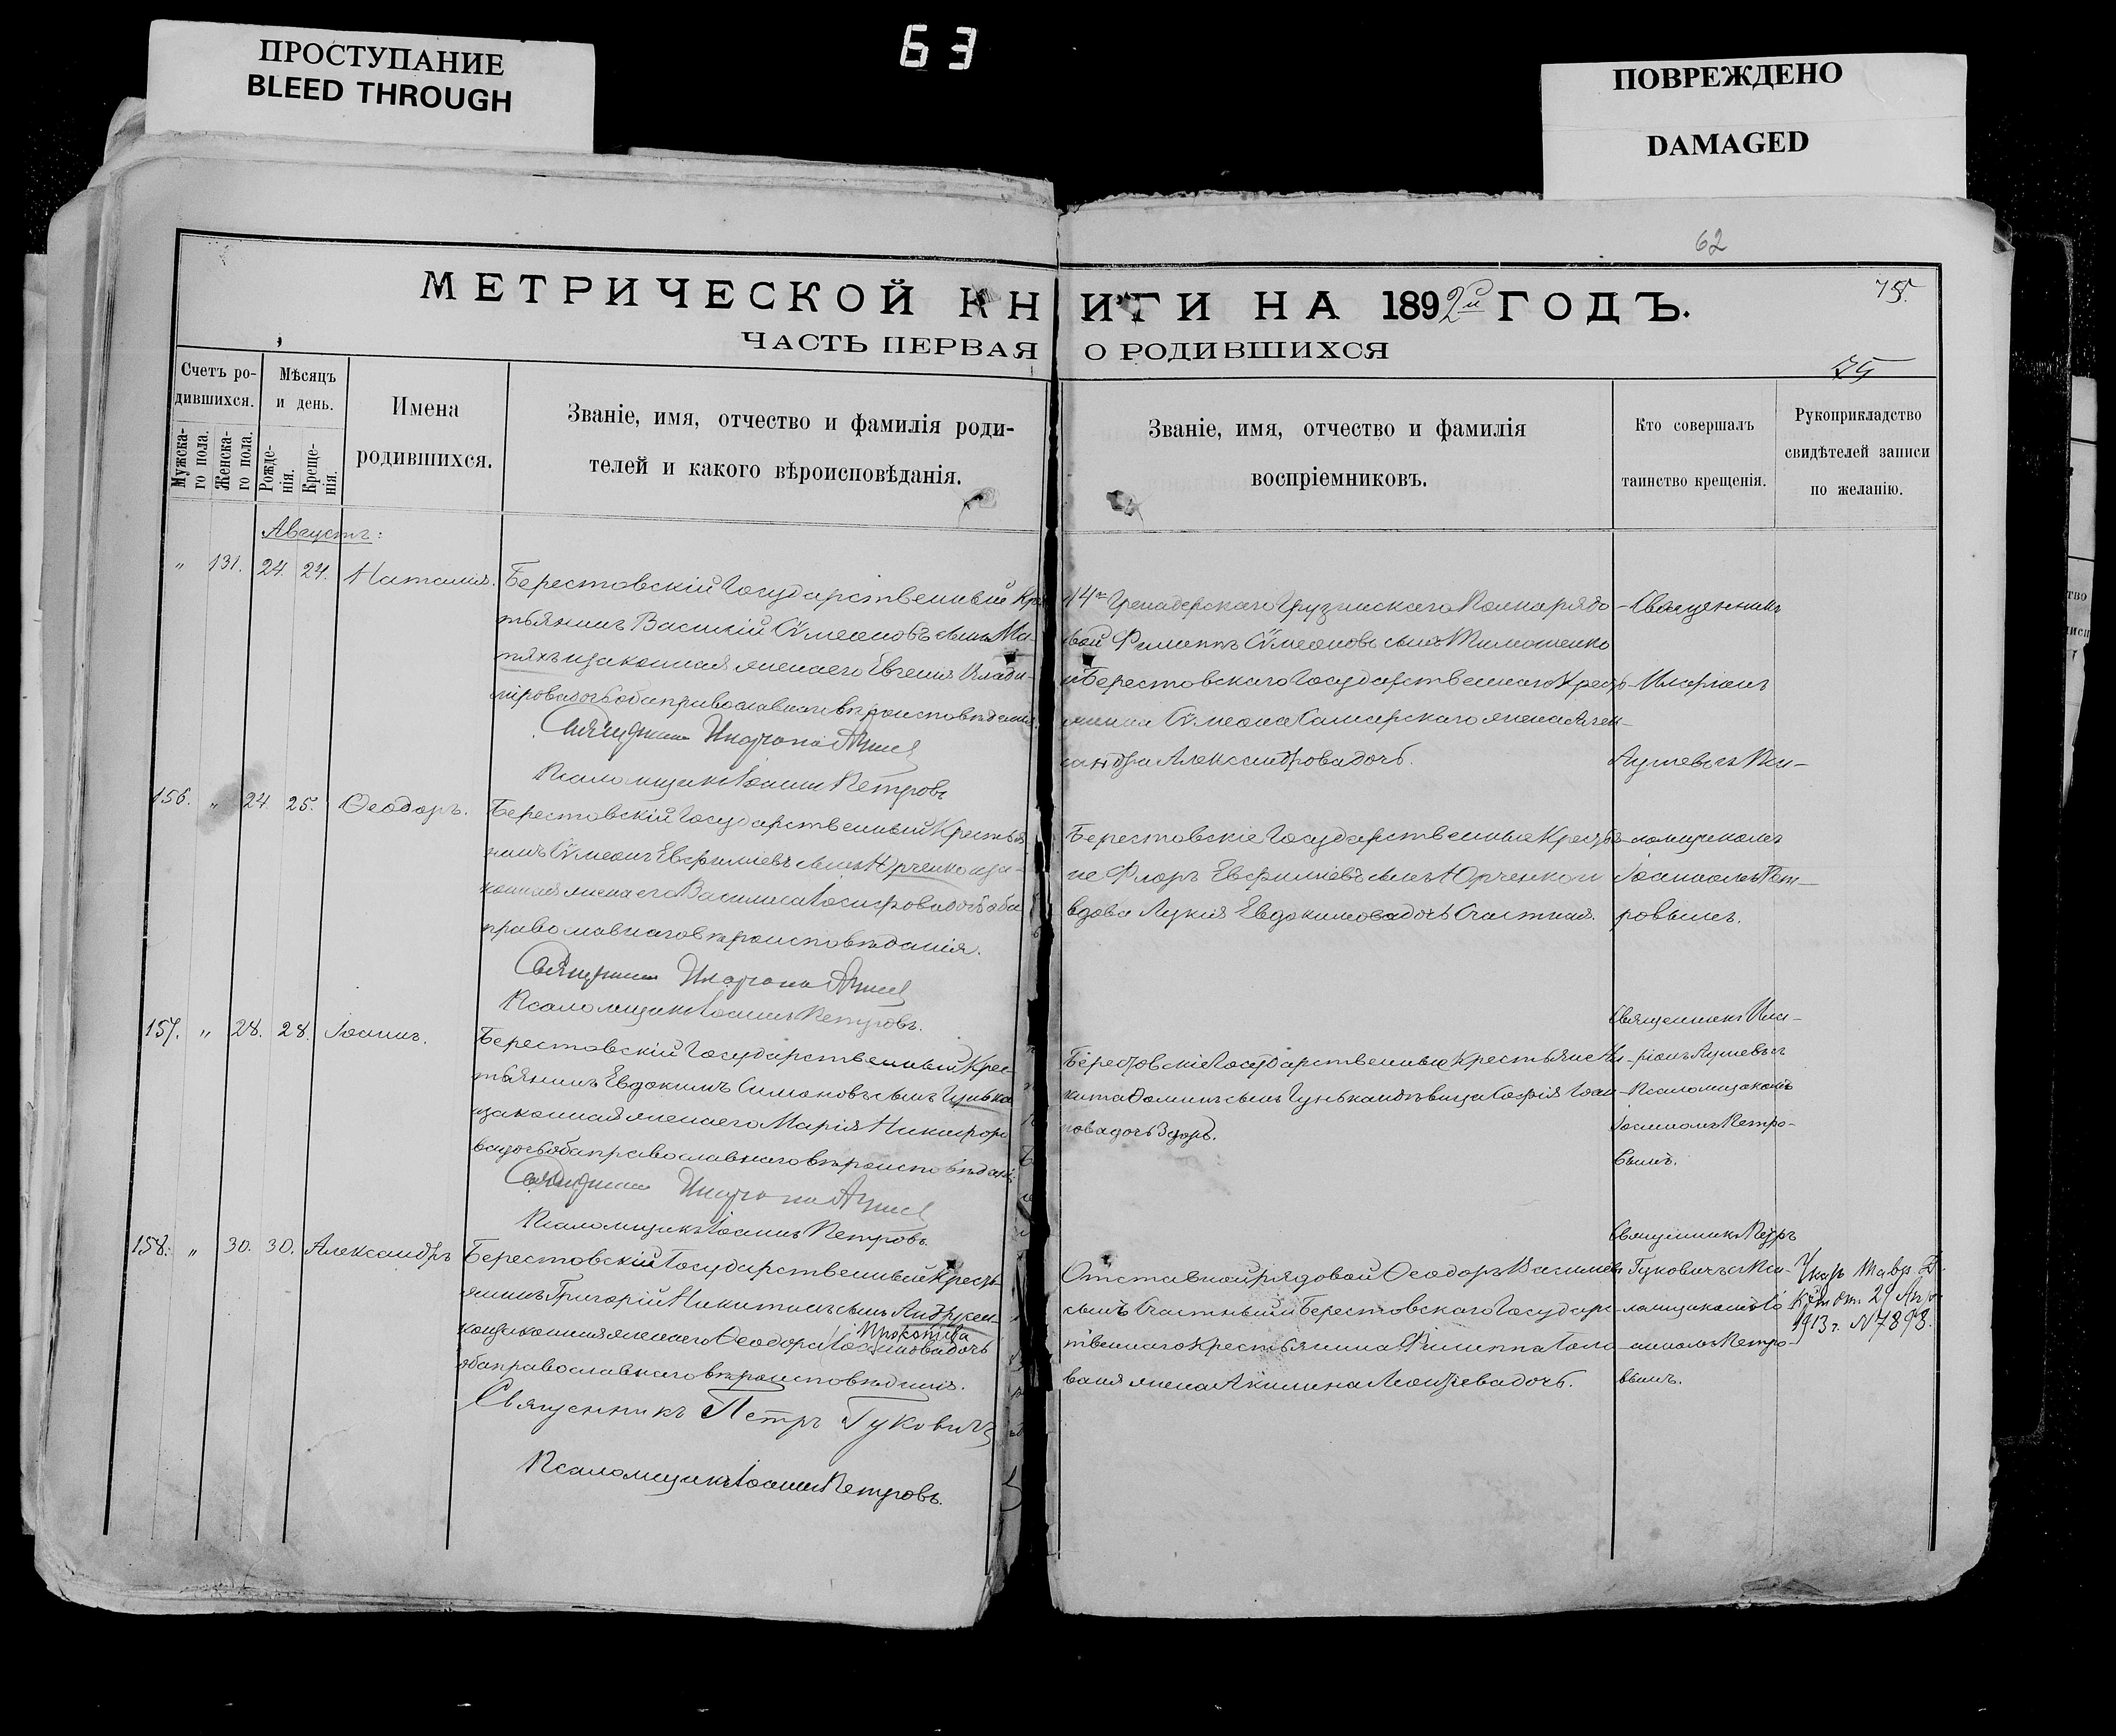 ПРОСТУПАНИЕ
BLEED THROUGH
63
ПОВРЕЖДЕНО
DAMAGED
62
75.
МЕТРИЧЕСКОЙ КНИГИ НА 1892й ГОДЪ.
ЧАСТЬ ПЕРВАЯ О РОДИВШИХСЯ
75
Счетъ ро-
дившихся.
Мужска-
го пола.
Женска-
го пола.
Мѣсяцъ
и день.
Рожде-
нія.
Креще-
нія.
Имена
родившихся.
Званіе, имя, отчество и фамилія роди-
телей и какого вѣроисповѣданія.
Званіе, имя, отчество и фамилія
воспріемниковъ.
Кто совершалъ
таинство крещенія.
Рукоприкладство
свидѣтелей записи
по желанію.
Августъ:
" 131. 24. 24. Наталія.
Берестовскій Государственный Кре
тьянинъ Василій Сѵмеоновъ сынъ Ма-
тяхъ и законная жена его Евгенія Влади-
мірова дочь оба православнаго вѣроисповѣданія.
Священникъ Иларіонъ
Псаломщикъ Іоаннъ Петровъ
14го Гренадерскаго Грузинскаго Полка рядо-
вой Филиппъ Сѵмеоновъ сынъ Тимошенко
и Берестовскаго Государственнаго Кресть-
янина Сѵмеона жена Алек-
сандра Александрова дочь.
Священникъ
Иларіонъ
Пса-
156. " 24. 25. Ѳеодоръ.
Берестовскій Государственный Крестья
нинъ Сѵмеонъ Евфиміевъ сынъ Юрченко и за-
конная жена его Василиса Іосифова дочь оба
православнаго вѣроисповѣданія.
Священникъ Иларіонъ
Псаломщикъ Іоаннъ Петровъ.
Берестовскіе Государственные Крестья-
не Флоръ Евфиміевъ сынъ Юрченко и
вдова Лукія Евдокимова дочь Счастная.
ломщикомъ
Іоанномъ Пет-
ровымъ.
157. " 28. 28. Іоаннъ.
Берестовскій Государственный Крес-
тьянинъ Евдокимъ Симоновъ сынъ Гунька
и законная жена его Марія Никифоро
ва дочь оба православнаго вѣроисповѣданія.
Священникъ Иларіонъ
Псаломщикъ Іоаннъ Петровъ.
Берестовскіе Государственные Крестьяне Ни-
кита Ѳоминъ сынъ Гунька и дѣвица Софія Іоан-
нова дочь Здоръ.
Священникъ Ила-
ріонъ
Псаломщикомъ
Іоанномъ Петро-
вымъ.
158. " 30. 30. Александръ
Берестовскій Государственный Кресть
янинъ Григорій Никитинъ сынъ Андрусен-
ко и законная жена его Ѳеодора дочь
Прокопіева
оба православнаго вѣроисповѣданія.
Священникъ Петръ Гуковичъ
Псаломщикъ Іоаннъ Петровъ.
Отставной рядовой Ѳеодоръ Васильевъ
сынъ Счастный и Берестовскаго Государс-
твеннаго Крестьянина Филиппа
жена Акилина дочь.
Священникъ Петръ
Гуковичъ съ Пса-
ломщикомъ Іо-
анномъ Петро-
вымъ.
Указъ Тавр. Д.
К. от 29 Апр.
1913 г. №7898.